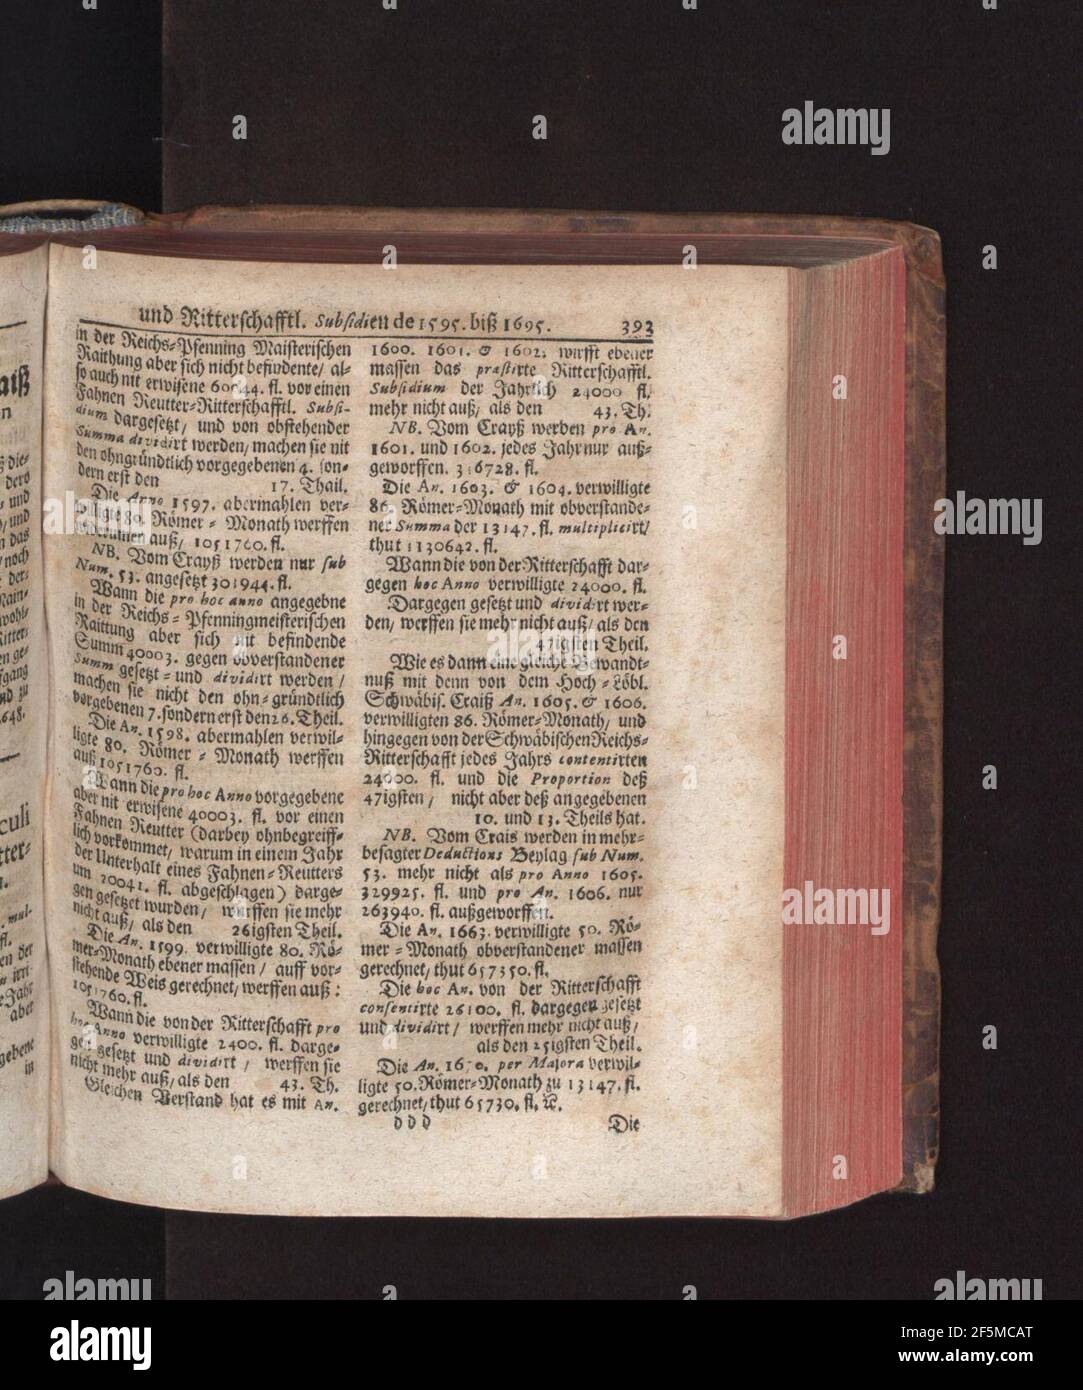 und Ritterschafftl. Subsidien de 1595. biß 1695. 393
in der Reichs-Pfenning Maisterischen
Raithung aber sich nicht befindente/ al-
so auch nit erwisene 60044. fl. vor einen
Fahnen Reutter-Ritterschafftl. Subsi-
dium dargesetzt/ und von obstehender
Summa dividirt werden/ machen sie nit
den ohngründtlich vorgegebenen 4. son-
dern erst den 17. Thail.
Die Anno 1597. abermahlen ver-
willigte 80. Römer-Monath werffen
widerumer auß/ 1051760. fl.
NB. Vom Crayß werden nur sub
Num. 53. angesetzt 301944. fl.
Wann die pro hoc anno angegebne
in der Reichs-Pfenningmeisterischen
Raittung aber sich nit befindende
Summ 40003. gegen obverstandener
Summ gesetzt- und dividirt werden/
machen sie nicht den ohn-gründtlich
vorgebenen 7. sondern erst den 26. Theil.
Die An. 1598. abermahlen verwil-
ligte 80. Römer-Monath werffen
auß 1051760. fl.
Wann die pro hoc Anno vorgegebene
aber nit erwisene 40003. fl. vor einen
Fahnen Reutter (darbey ohnbegreiff-
lich vorkommet/ warum in einem Jahr
der Unterhalt eines Fahnen-Reutters
um 20041. fl. abgeschlagen) darge-
gen gesetzet wurden/ wurffen sie mehr
nicht auß/ als den 26igsten Theil.
Die An. 1599. verwilligte 80. Rö-
mer-Monath ebener massen/ auff vor-
stehende Weis gerechnet/ werffen auß:
1051760. fl.
Wann die von der Ritterschafft pro
hoc Anno verwilligte 2400. fl. darge-
gen gesetzt und dividirt/ werffen sie
nicht mehr auß/ als den 43. Th.
Gleichen Verstand hat es mit An.
1600. 1601. & 1602. wirfft ebener
massen das præstirte Ritterschafftl.
Subsidium der Jährlich 24000 fl.
mehr nicht auß/ als den 43. Th.
NB. Vom Crayß werden pro An.
1601. und 1602. jedes Jahr nur auß-
geworffen. 316728. fl.
Die An. 1603. & 1604. verwilligte
86. Römer-Monath mit obverstande-
ner Summa der 13147. fl. multiplicirt/
thut 1130642. fl.
Wann die von der Ritterschafft dar-
gegen hoc Anno verwilligte 24000. fl.
Dargegen gesetzt und dividirt wer-
den/ werffen sie mehr nicht auß/ als den
47igsten Theil.
Wie es dann eine gleiche Bewandt-
nuß mit denn von dem Hoch-Löbl.
Schwäbis. Craiß An. 1605. & 1606.
verwilligten 86. Römer-Monath/ und
hingegen von der Schwäbischen Reichs-
Ritterschafft jedes Jahrs contentirten
24000. fl. und die Proportion deß
47igsten/ nicht aber deß angegebenen
10. und 13. Theils hat.
NB. Vom Crais werden in mehr-
besagter Deductions Beylag sub Num.
53. mehr nicht als pro Anno 1605.
329925. fl. und pro An. 1606. nur
263940. fl. außgeworffen.
Die An. 1663. verwilligte 50. Rö-
mer-Monath obverstandener massen
gerechnet/ thut 657350. fl.
Die hoc An. von der Ritterschafft
consentirte 26100. fl. dargegen gesetzt
und dividirt/ werffen mehr nicht auß/
als den 25igsten Theil.
Die An. per Majora verwil-
ligte 50. Römer-Monath zu 13147. fl.
gerechnet/ thut 65730. fl. &c.
ddd Die
alamy
alamy
alamy
alamy
Image ID: 2F5MCAT
www.alamy.com